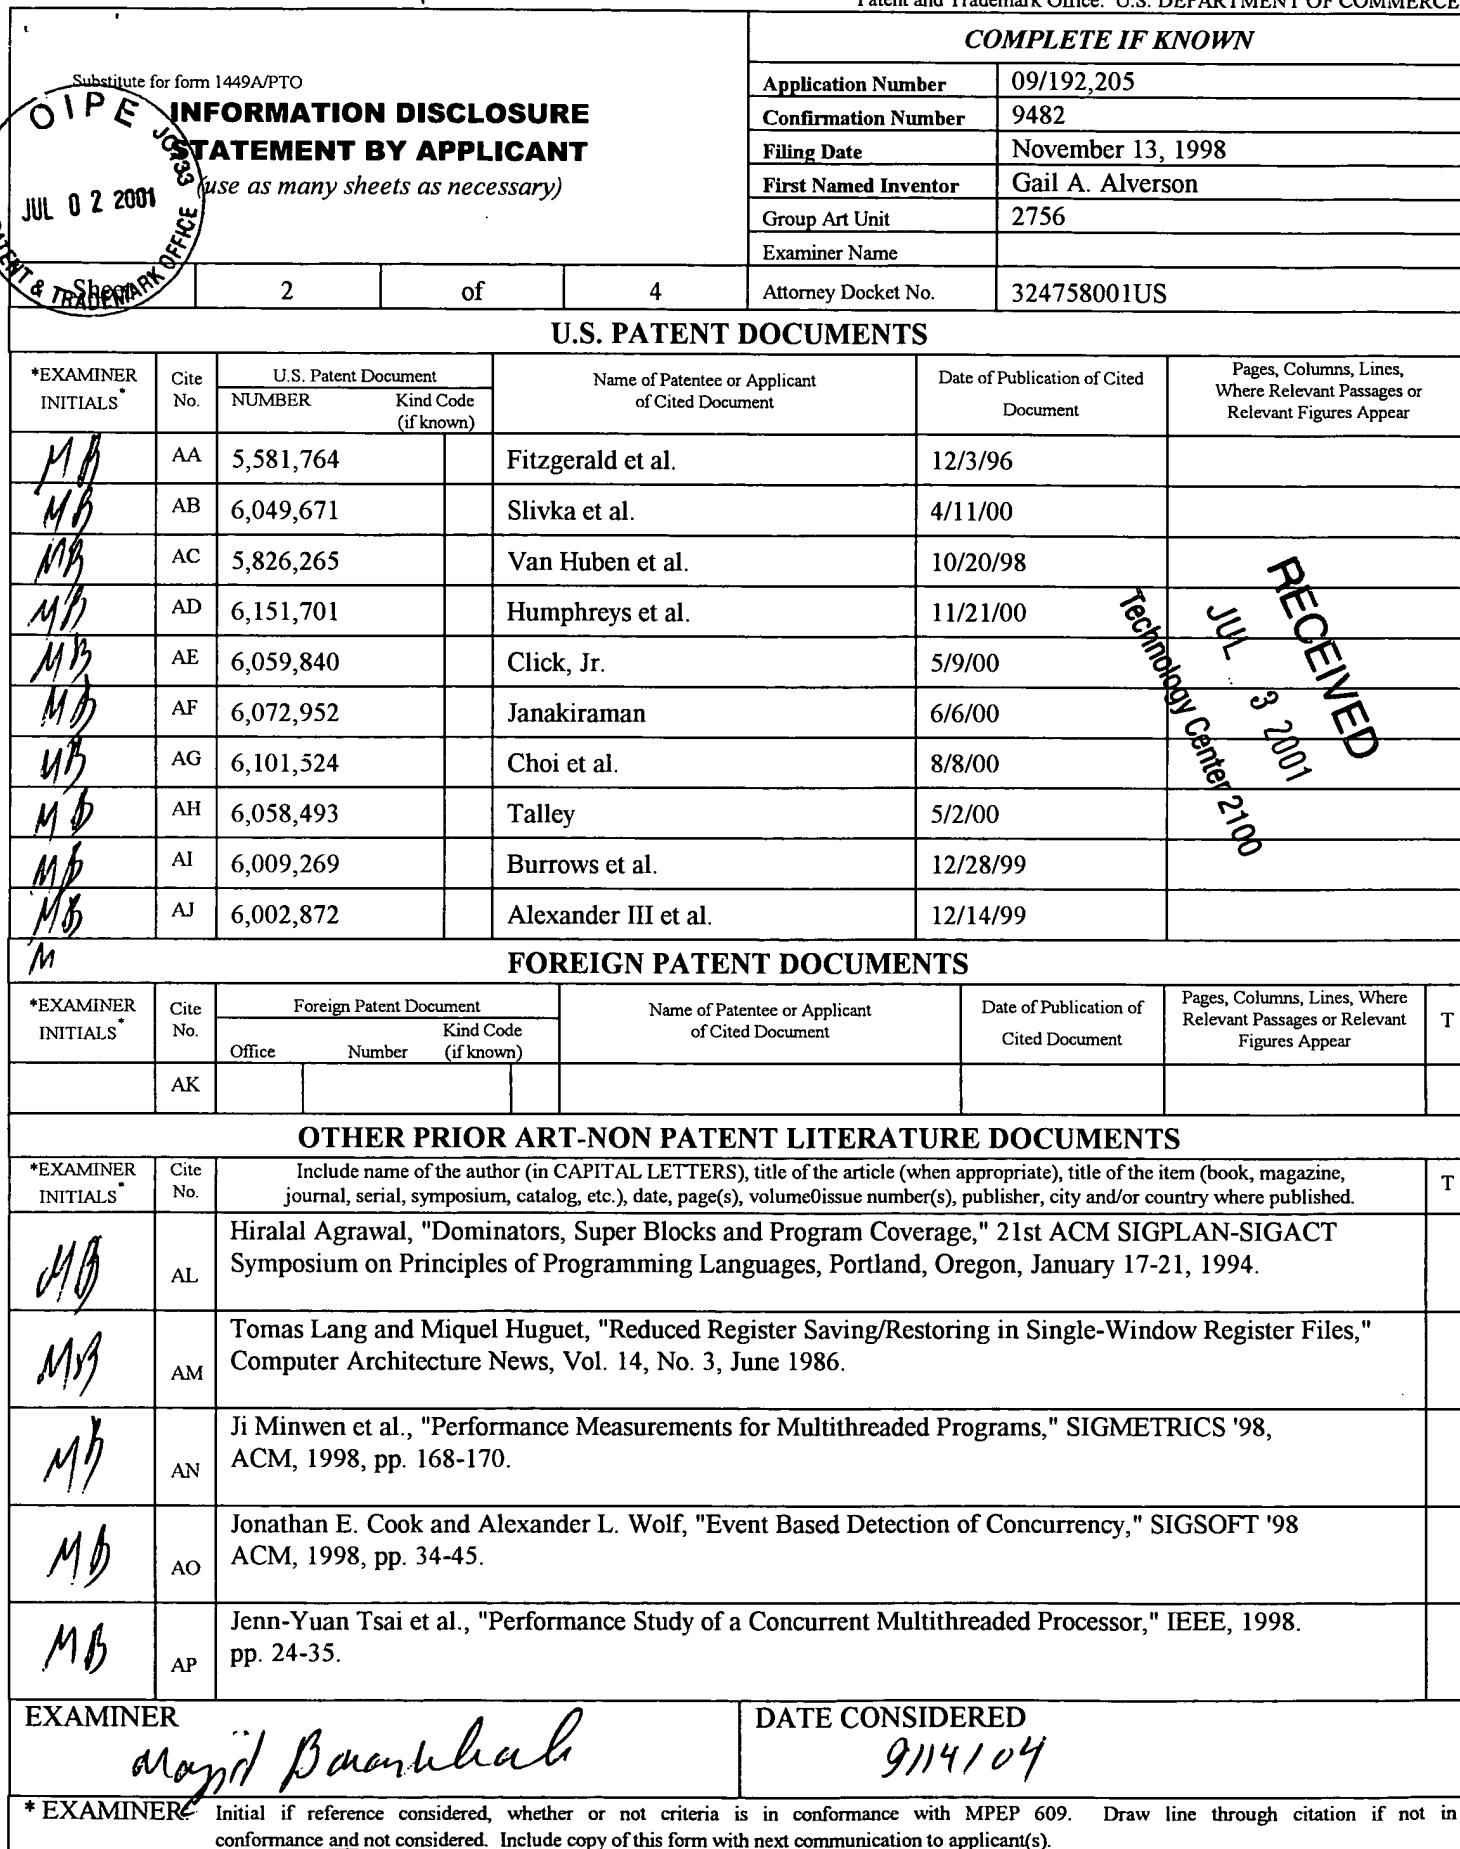 Patent and Trademark Office: U.S. DEPARTMENT OF COMMERCE
COMPLETE IF KNOWN
Substitute for form 1449A/PTO
INFORMATION DISCLOSURE
STATEMENT BY APPLICANT
(use as many sheets as necessary)
OIPE JC133
JUL 0 2 2001
PATENT & TRADEMARK OFFICE
Application Number 09/192,205
Confirmation Number 9482
Filing Date November 13, 1998
First Named Inventor Gail A. Alverson
Group Art Unit 2756
Examiner Name
Sheet 2 of 4 Attorney Docket No. 324758001US
U.S. PATENT DOCUMENTS
*EXAMINER INITIALS* Cite No. U.S. Patent Document NUMBER Kind Code (if known) Name of Patentee or Applicant of Cited Document Date of Publication of Cited Document Pages, Columns, Lines, Where Relevant Passages or Relevant Figures Appear
MB AA 5,581,764 Fitzgerald et al. 12/3/96
MB AB 6,049,671 Slivka et al. 4/11/00
MB AC 5,826,265 Van Huben et al. 10/20/98
MB AD 6,151,701 Humphreys et al. 11/21/00
MB AE 6,059,840 Click, Jr. 5/9/00
MB AF 6,072,952 Janakiraman 6/6/00
MB AG 6,101,524 Choi et al. 8/8/00
MB AH 6,058,493 Talley 5/2/00
MB AI 6,009,269 Burrows et al. 12/28/99
MB AJ 6,002,872 Alexander III et al. 12/14/99
RECEIVED
JUL 3 2001
Technology Center 2100
M
FOREIGN PATENT DOCUMENTS
*EXAMINER INITIALS* Cite No. Foreign Patent Document Office Number Kind Code (if known) Name of Patentee or Applicant of Cited Document Date of Publication of Cited Document Pages, Columns, Lines, Where Relevant Passages or Relevant Figures Appear T
AK
OTHER PRIOR ART-NON PATENT LITERATURE DOCUMENTS
*EXAMINER INITIALS* Cite No. Include name of the author (in CAPITAL LETTERS), title of the article (when appropriate), title of the item (book, magazine, T
journal, serial, symposium, catalog, etc.), date, page(s), volume0issue number(s), publisher, city and/or country where published.
MB AL Hiralal Agrawal, "Dominators, Super Blocks and Program Coverage," 21st ACM SIGPLAN-SIGACT
Symposium on Principles of Programming Languages, Portland, Oregon, January 17-21, 1994.
MB AM Tomas Lang and Miquel Huguet, "Reduced Register Saving/Restoring in Single-Window Register Files,"
Computer Architecture News, Vol. 14, No. 3, June 1986.
MB AN Ji Minwen et al., "Performance Measurements for Multithreaded Programs," SIGMETRICS '98,
ACM, 1998, pp. 168-170.
MB AO Jonathan E. Cook and Alexander L. Wolf, "Event Based Detection of Concurrency," SIGSOFT '98
ACM, 1998, pp. 34-45.
MB AP Jenn-Yuan Tsai et al., "Performance Study of a Concurrent Multithreaded Processor," IEEE, 1998.
pp. 24-35.
EXAMINER DATE CONSIDERED
Majid 9/14/04
* EXAMINER: Initial if reference considered, whether or not criteria is in conformance with MPEP 609. Draw line through citation if not in
conformance and not considered. Include copy of this form with next communication to applicant(s).